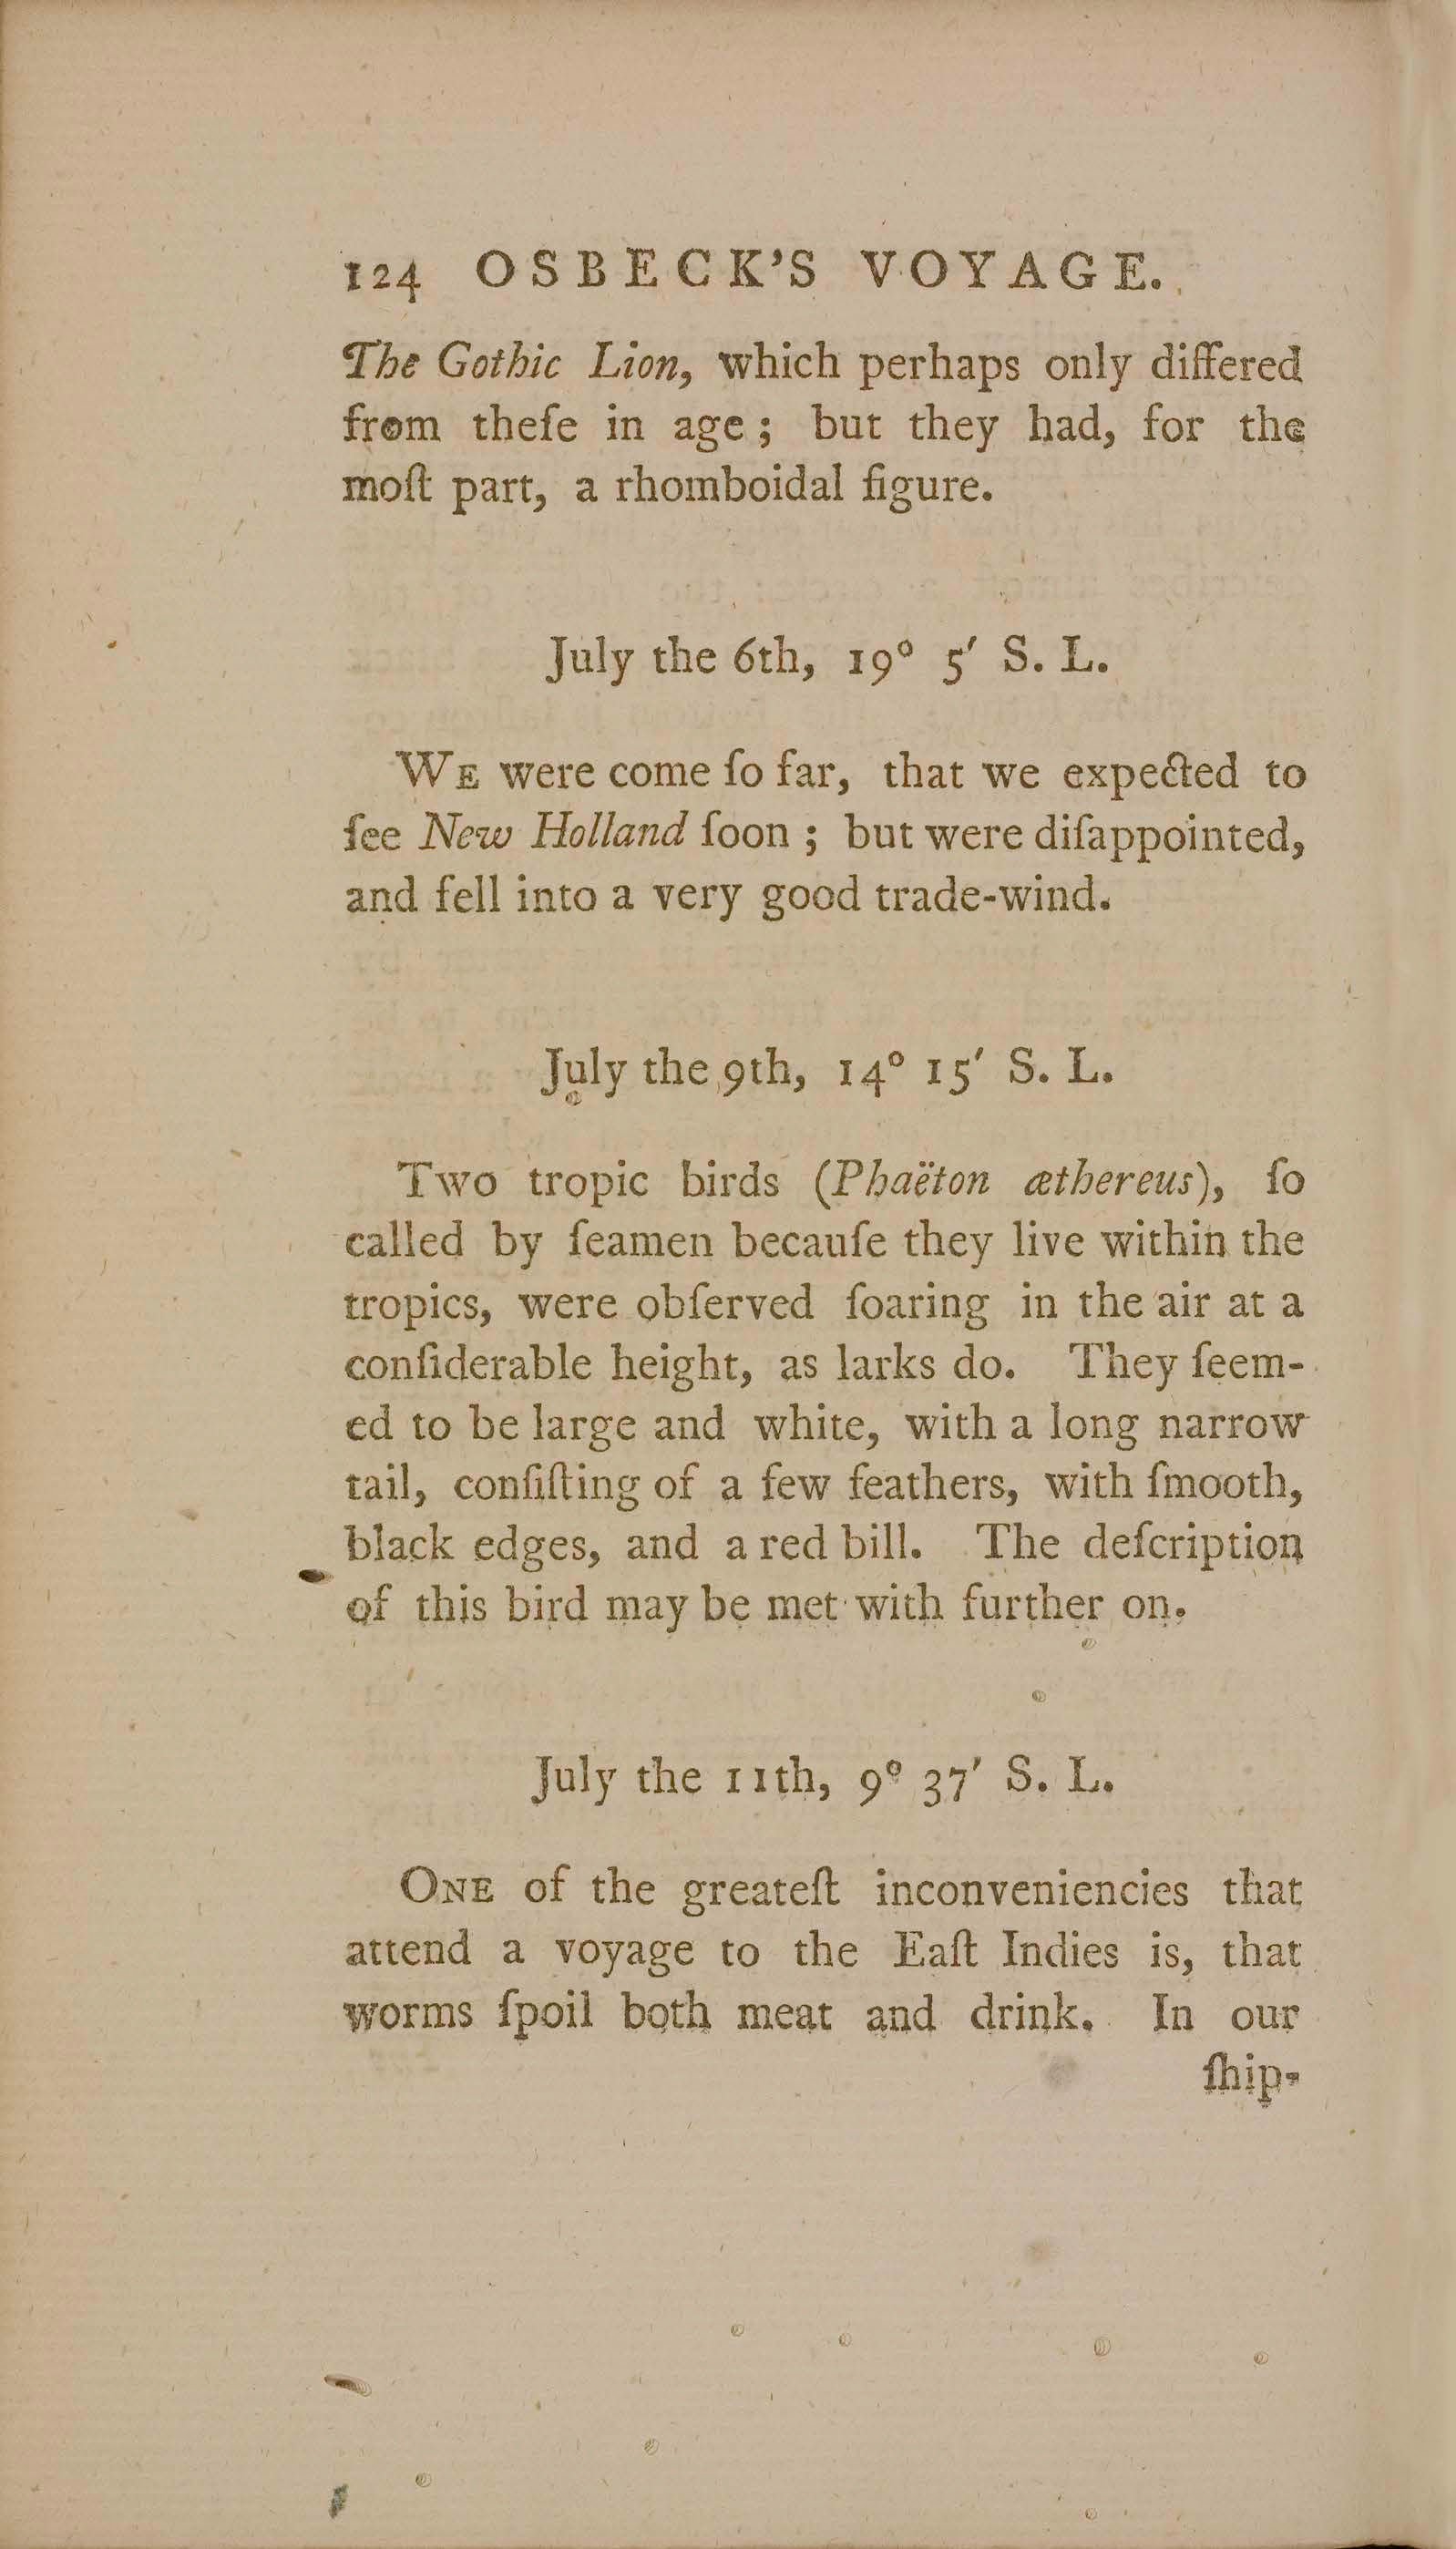 124 OSBECK'S VOYAGE.
The Gothic Lion, which perhaps only differed
from theſe in age; but they had, for the
moſt part, a rhomboidal figure.
July the 6th, 19° 5′ S. L.
WE were come ſo far, that we expected to
ſee New Holland ſoon; but were diſappointed,
and fell into a very good trade-wind.
July the 9th, 14° 15′ S. L.
Two tropic birds (Phaëton æthereus), ſo
called by ſeamen becauſe they live within the
tropics, were obſerved ſoaring in the air at a
conſiderable height, as larks do. They ſeem-
ed to be large and white, with a long narrow
tail, conſiſting of a few feathers, with ſmooth,
black edges, and a red bill. The deſcription
of this bird may be met with further on.
July the 11th, 9° 37′ S. L.
ONE of the greateſt inconveniencies that
attend a voyage to the Eaſt Indies is, that
worms ſpoil both meat and drink. In our
ſhip-